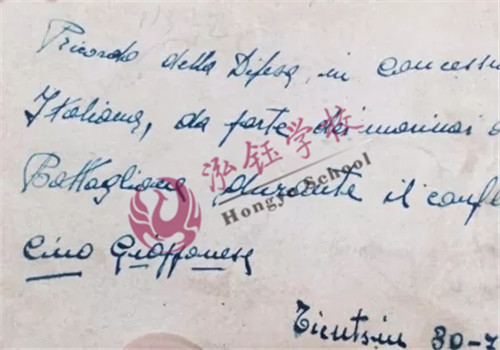 Ricordo della Difesa, in concessi
Italiana, da parte dei marinai d
Battaglione, durante il confl
Cino Giapponese
Tientsin 30-7
泓钰学校
Hongyu School